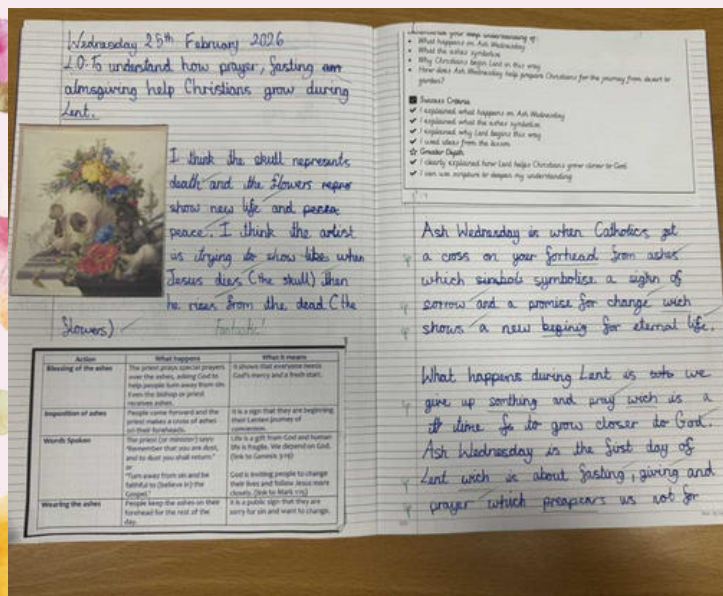 Wednesday 25th February 2026
L.O: To understand how prayer, fasting
almsgiving help Christians grow during
Lent.
I think the skull represents
death and the flowers repre
show new life and
peace. I think the artist
is trying to show like when
Jesus dies (the skull) then
he rises from the dead (the
flowers)
Fantastic!
Action What happens What it means
Blessing of the ashes The priest prays special prayers over the ashes, asking God to help people turn away from sin. Even the bishop or priest receives ashes. It shows that everyone needs God's mercy and a fresh start.
Imposition of ashes People come forward and the priest makes a cross of ashes on their foreheads. It is a sign that they are beginning their Lenten journey of conversion.
Words Spoken The priest (or minister) says: "Remember that you are dust, and to dust you shall return." or "Turn away from sin and be faithful to (believe in) the Gospel." Life is a gift from God and human life is fragile. We depend on God. (link to Genesis 3:19) God is inviting people to change their lives and follow Jesus more closely. (link to Mark 1:15)
Wearing the ashes People keep the ashes on their forehead for the rest of the day. It is a public sign that they are sorry for sin and want to change.
your deep understanding of:
• What happens on Ash Wednesday
• What the ashes symbolise
• Why Christians begin Lent in this way
• How does Ash Wednesday help prepare Christians for the journey from desert to
garden?
Success Criteria
✔ I explained what happens on Ash Wednesday
✔ I explained what the ashes symbolise
✔ I explained why Lent begins this way
✔ I used ideas from the lesson
☆ Greater Depth
✔ I clearly explained how Lent helps Christians grow closer to God
✔ I can use scripture to deepen my understanding
Ash Wednesday is when Catholics get
a cross on your forhead from ashes
which simbols symbolise a sighn of
sorrow and a promise for change wich
shows a new begining for eternal life.
What happens during Lent is we
give up somthing and pray wich is a
time to grow closer to God.
Ash Wednesday is the first day of
Lent wich is about fasting, giving and
prayer which preapears us not for